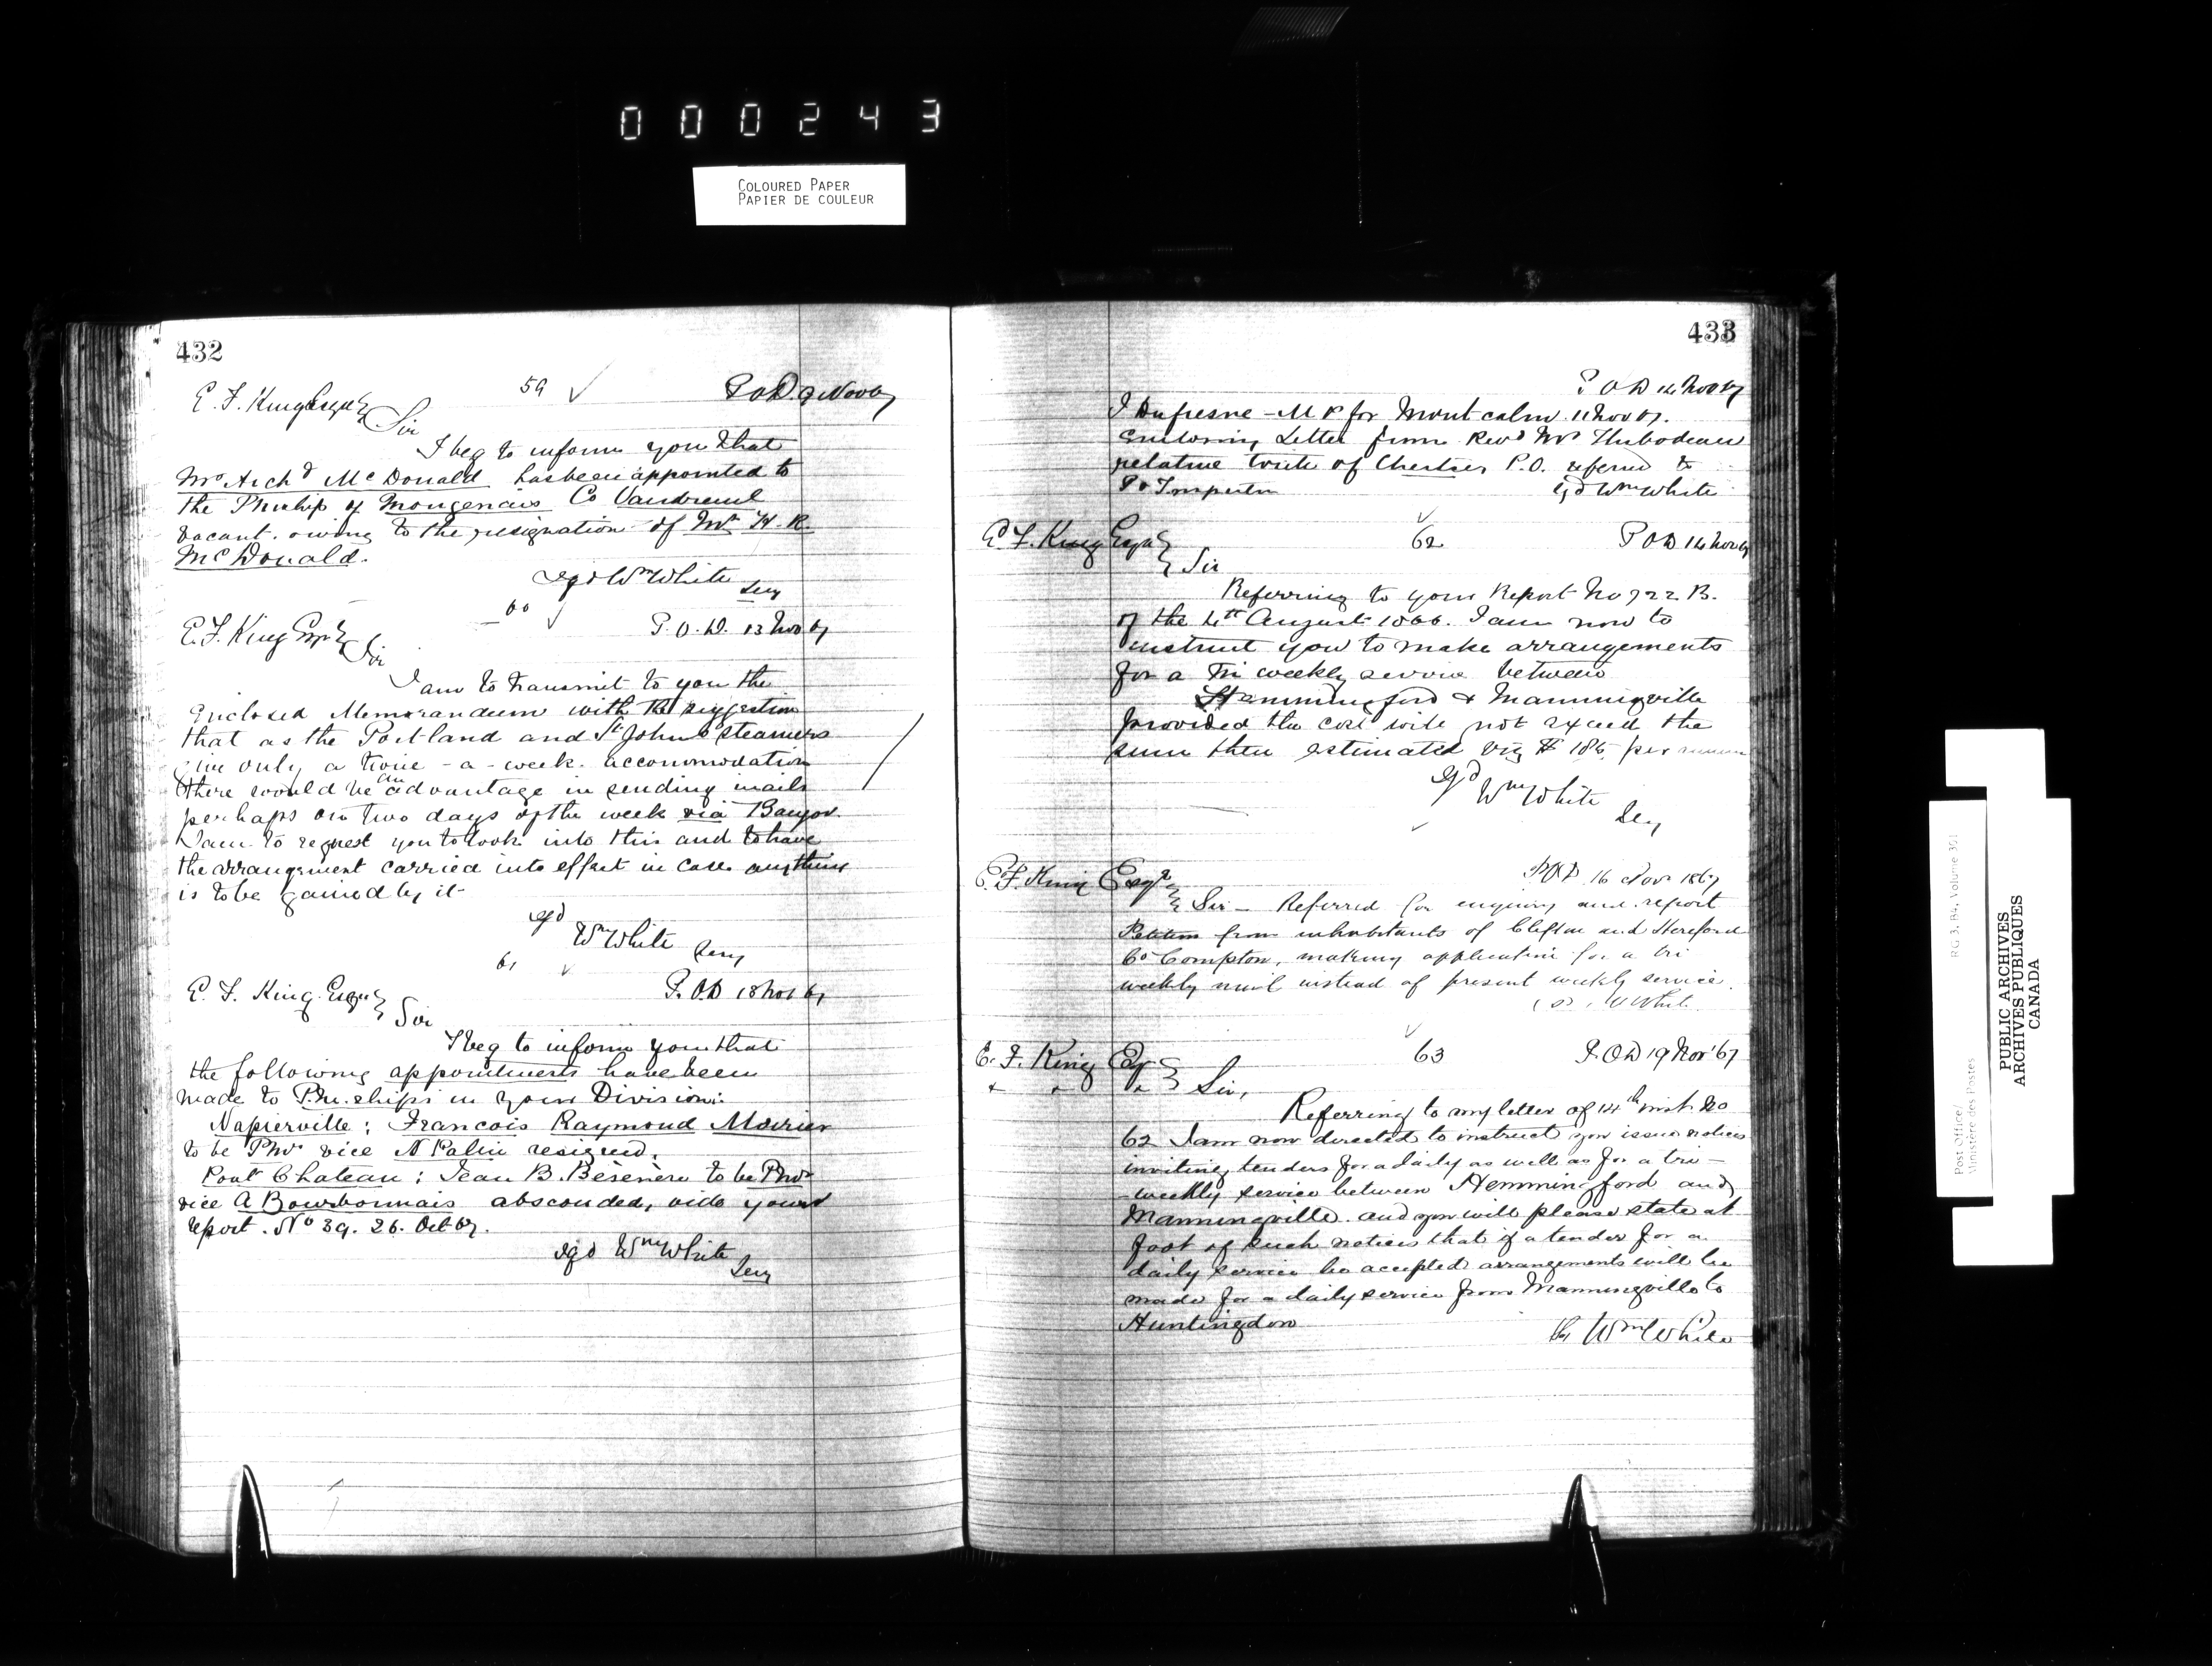 000243
COLOURED PAPER
PAPIER DE COULEUR
432
E. F. King Esqr
59
P.O.D. 9 Nov 67
Sir
I beg to inform you that
Mr. Archd McDonald has been appointed to
the Pmship of Mongenais Co Vaudreuil
vacant owing to the resignation of Mr H. R.
McDonald.
sgd Wm White
Secy
60
E. F. King Esqr
P.O.D. 13 Nov 67
Sir
I am to transmit to you the
Enclosed Memorandum with the suggestion
that as the Portland and St John Steamers
give only a twice-a-week accommodation
there would be an advantage in sending mails
perhaps on two days of the week via Bangor.
I am to request you to look into this and to have
the arrangement carried into effect in case anything
is to be gained by it
sgd
Wm White
Secy
61
E. F. King Esqr
P.O.D 18 Nov 67
Sir
I beg to inform you that
the following appointments have been
made to Pm.ships in your Division:
Napierville; Francois Raymond
to be Pmr vice N Palin resigned.
Pont Chateau; Jean B. to be Pmr
vice A Bourbonnais absconded, vide your
report. No 39. 26. Oct 67.
sgd Wm White
Secy
433
P O D 14 Nov 67
J Dufresne - M P for Montcalm 11 Nov 67.
Enclosing Letter from Revd Mr Thibodeau
relative to site of Chertsey P.O. referred to
P O Inspector
sgd Wm White
E. F. King Esqr
62
P O D 14 Nov 67
Sir
Referring to your Report No 722 B.
of the 4th August 1866. I am now to
instruct you to make arrangements
for a Tri weekly service between
Hemmingford & Manningville
provided the cost will not exceed the
sum then estimated viz $ 185 per annum
sgd
Wm White
Secy
E. F. King Esqr
P.O.D 16 Nov 1867
Sir - Referred for enquiry and report
Petition from inhabitants of Clifton and Hereford
Co Compton, making application for a tri
weekly mail instead of present weekly service.
(sd) W White
E. F. King Esqr
63
P.O.D 19 Nov '67
Sir,
Referring to my letter of 14th inst. No
62 I am now directed to instruct you issue notices
inviting tenders for a daily as well as for a tri-
-weekly service between Hemmingford and
Manningville. and you will please state at
foot of such notices that if a tender for a
daily service be accepted arrangements will be
made for a daily service from Manningville to
Huntingdon
Wm White
Post Office/
Ministère des Postes
RG 3, B4, Volume 301
PUBLIC ARCHIVES
ARCHIVES PUBLIQUES
CANADA